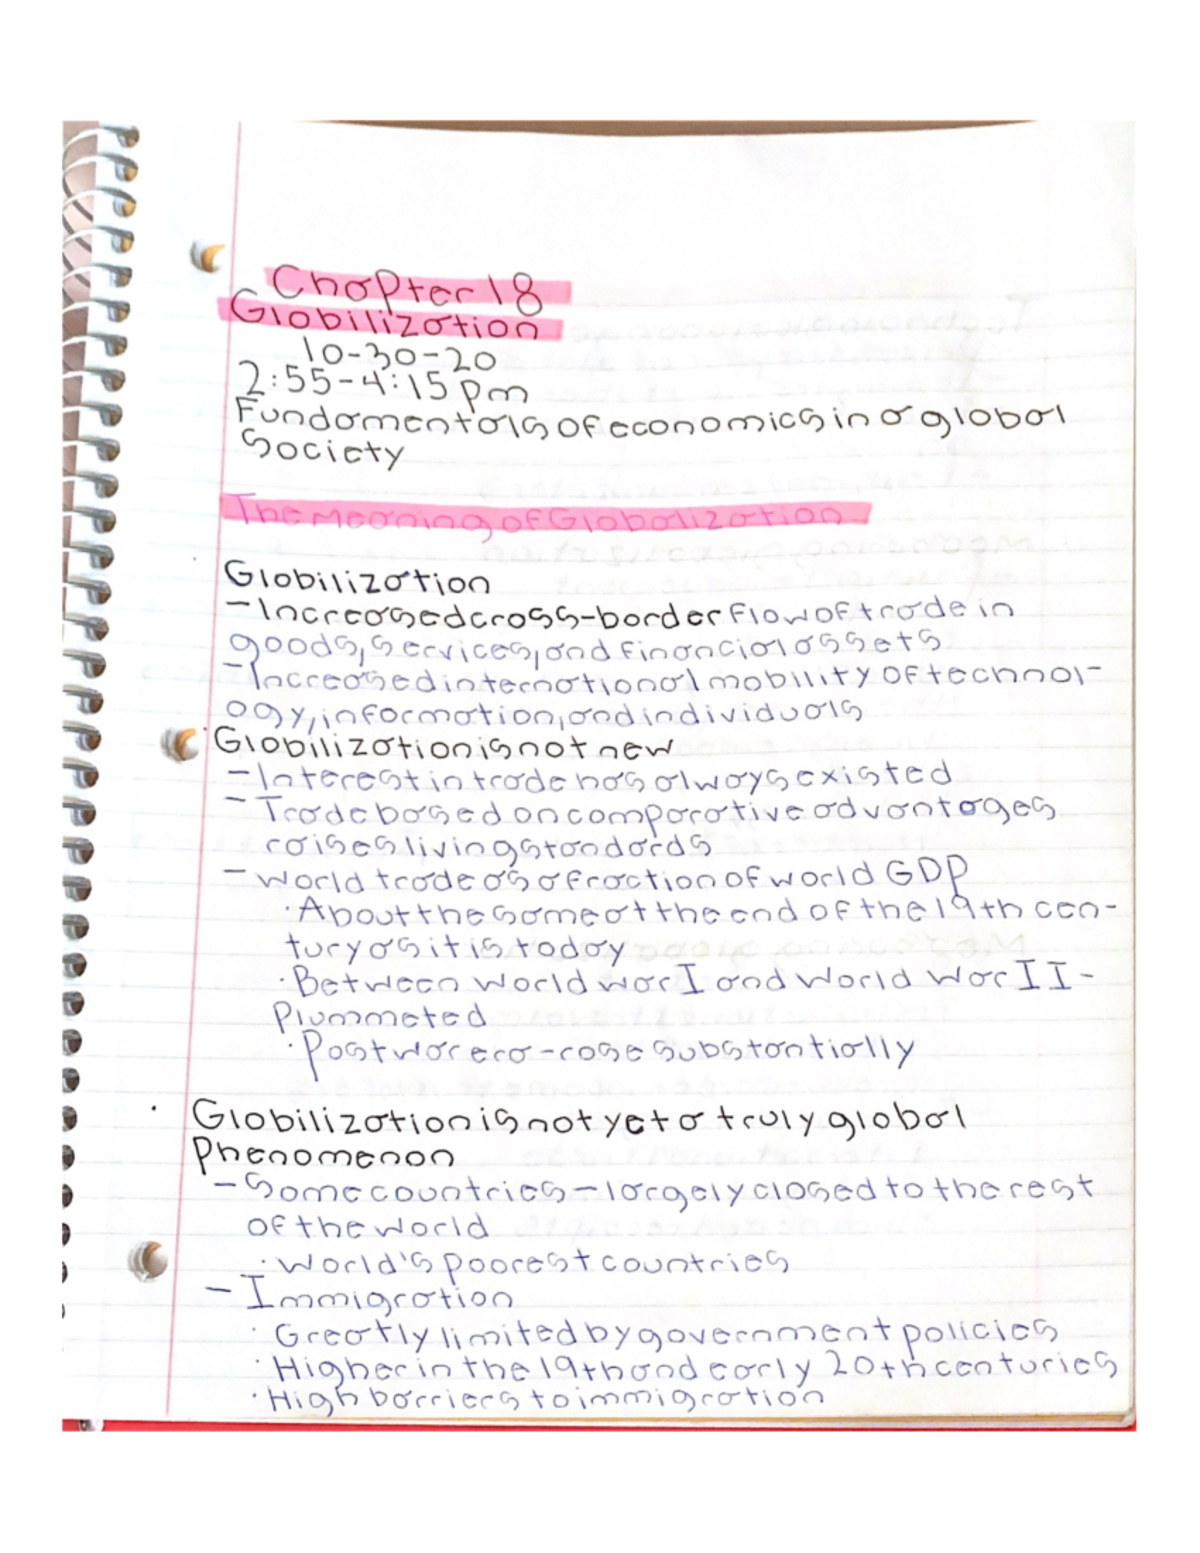 Chapter 18
Globilization
10-30-20
2:55-4:15pm
Fundamentals of economics in a global
Society
The Meaning of Globalization
Globilization
- Increased cross-border flow of trade in
goods, services, and financial assets
- Increased international mobility of technol-
ogy, information, and individuals
· Globilization is not new
- Interest in trade has always existed
- Trade based on comparative advantages
raises living standards
- World trade as a fraction of world GDP
· About the same at the end of the 19th cen-
tury as it is today
· Between World War I and World War II -
Plummeted
· Postwar era - rose substantially
· Globilization is not yet a truly global
Phenomenon
- Some countries - largely closed to the rest
of the world
· World's poorest countries
- Immigration
· Greatly limited by government policies
· Higher in the 19th and early 20th centuries
· High barriers to immigration